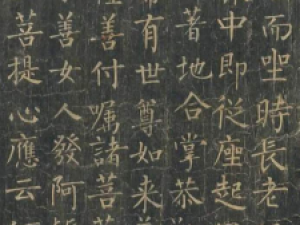 而坐時長老
中即從座起
著地合掌恭
希有世尊如来
善付囑諸菩
善女人發阿
菩提心應云